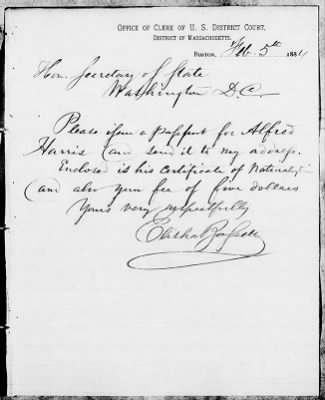 OFFICE OF CLERK OF U. S. DISTRICT COURT,
DISTRICT OF MASSACHUSETTS.
BOSTON, Feb. 5th 1884
Hon. Secretary of State
Washington D.C.
Please issue a passport for Alfred
Harris and send it to my address.
Enclosed is his Certificate of Naturalization
and also your fee of five dollars
Yours very respectfully
Elisha Bassett